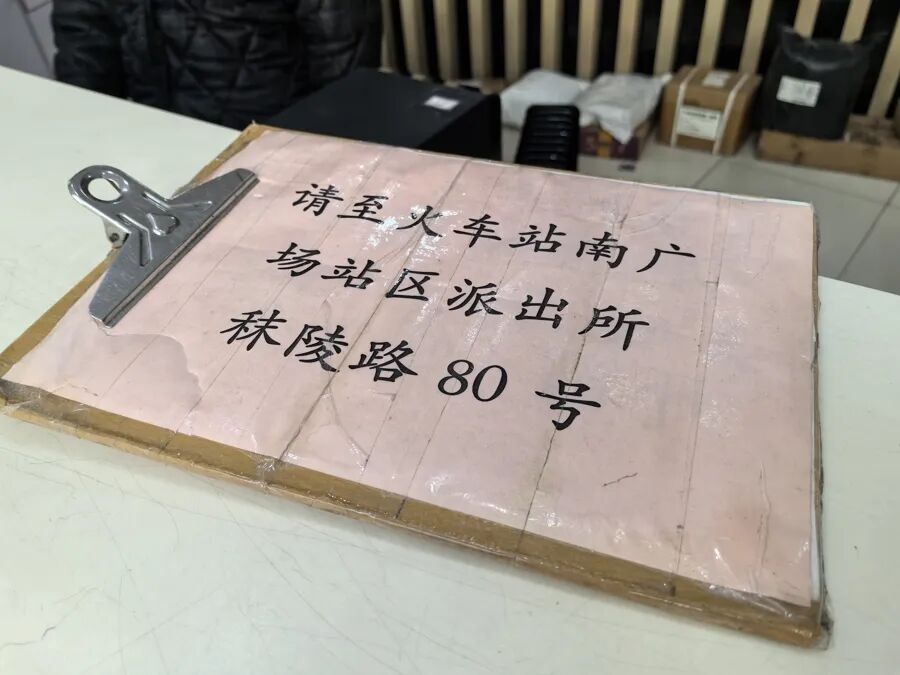 请至火车站南广
场站区派出所
秣陵路 80 号